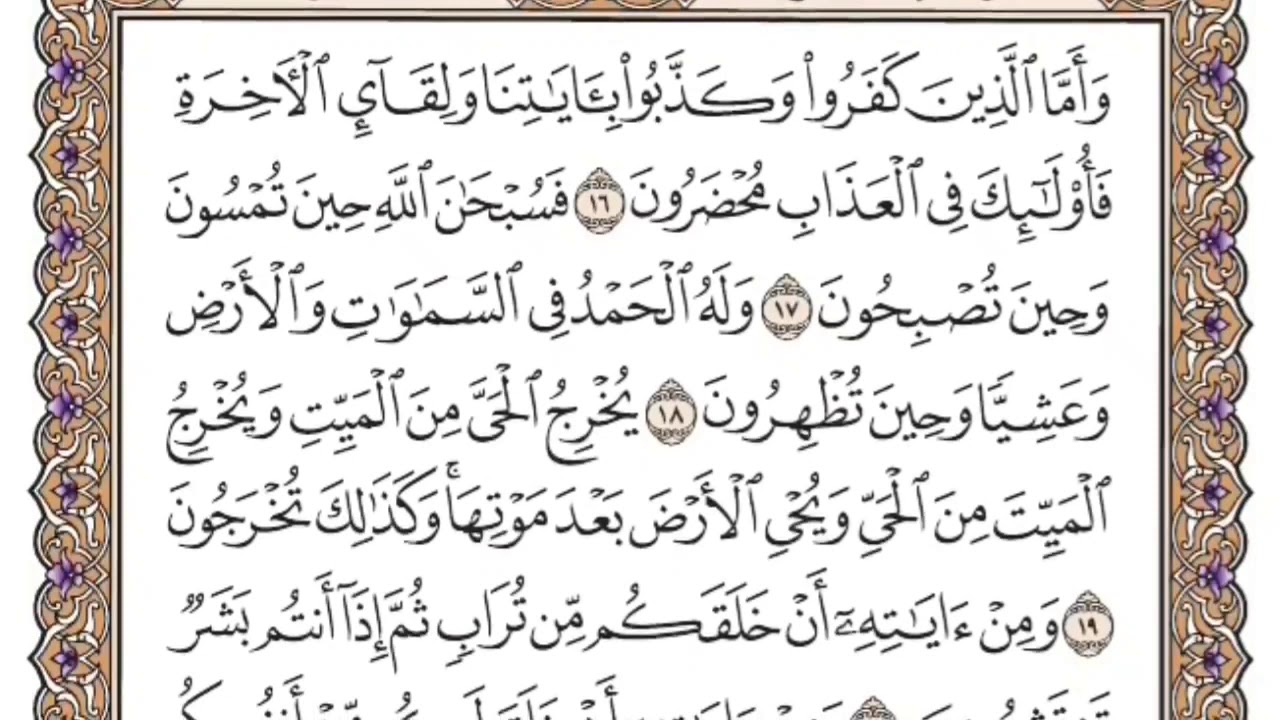 وَأَمَّا ٱلَّذِينَ كَفَرُوا۟ وَكَذَّبُوا۟ بِـَٔايَـٰتِنَا وَلِقَآئِ ٱلْـَٔاخِرَةِ
فَأُو۟لَـٰٓئِكَ فِى ٱلْعَذَابِ مُحْضَرُونَ ١٦ فَسُبْحَـٰنَ ٱللَّهِ حِينَ تُمْسُونَ
وَحِينَ تُصْبِحُونَ ١٧ وَلَهُ ٱلْحَمْدُ فِى ٱلسَّمَـٰوَٰتِ وَٱلْأَرْضِ
وَعَشِيًّا وَحِينَ تُظْهِرُونَ ١٨ يُخْرِجُ ٱلْحَىَّ مِنَ ٱلْمَيِّتِ وَيُخْرِجُ
ٱلْمَيِّتَ مِنَ ٱلْحَىِّ وَيُحْىِ ٱلْأَرْضَ بَعْدَ مَوْتِهَا ۚ وَكَذَٰلِكَ تُخْرَجُونَ
١٩ وَمِنْ ءَايَـٰتِهِۦٓ أَنْ خَلَقَكُم مِّن تُرَابٍ ثُمَّ إِذَآ أَنتُم بَشَرٌ